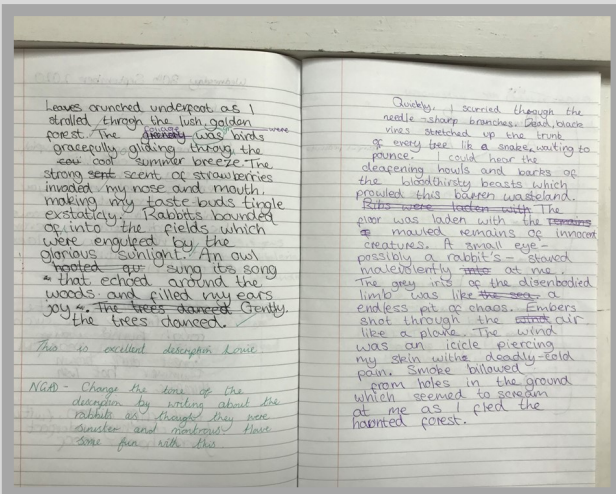 Leaves crunched underfoot as I
strolled throgh the lush, golden
forest. The foliage was birds were
gracefully gliding throug the
cool summer breeze. The
strong sept scent of strawberries
invaded my nose and mouth,
making my taste-buds tingle
exstaticly. Rabbits bounded
of into the fields which
were engulfed by the
glorious sunlight. An owl
hooted sung its song
that echoed around the
woods and filled my ears
joy. The trees danced Gently.
the trees danced.
This is excellent description
NGAD - Change the tone of the
description by writing about the
rabbits as though they were
sinister and monstrous Have
some fun with this
Quickly. I scurried through the
needle-sharp branches. Dead, black
vines stretched up the trunk
of every tree like a snake, waiting to
pounce. I could hear the
deafening howls and barks of
the bloodthirsty beasts which
prowled this barren wasteland.
Ribs were laden with The
floor was laden with the remains
mauled remains of innocent
creatures. A small eye-
possibly a rabbit's - stared
malevolently into at me.
The grey iris of the disenbodied
limb was like the sea, a
endless pit of chaos. Embers
shot through the wind air
like a plane. The wind
was an icicle piercing
my skin with deadly-cold
pain. Smoke billowed
from holes in the ground
which seemed to scream
at me as I fled the
haunted forest.